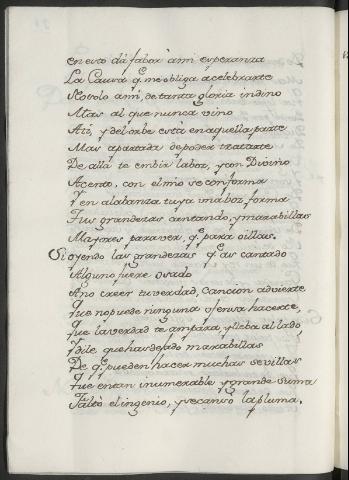 en esto dá fabor á mi esperanza
La Causa q. me obliga a celebrarte
No solo a mi, de tanta gloria indino
Mas al que nunca vino
Ati, y del orbe está en aquella parte
Mas apartada de poder tratarte
De allá te embia labor, y con Divino
Acento, con el mio se conforma
Y en alabanza tuya una boz forma
Tus grandezas cantando, y marabillas
Mayores para ver, q. para oillas.
Si oyendo las grandezas q. as cantado
Alguno fuere osado
Ano creer tu verdad, Cancion advierte
que no puede ninguno ofensa hacerte,
que la verdad te ampara, y lleba al lado,
Y dile que has dejado marabillas
De q. pueden hacer muchas sevillas
que en tan inumerable y grande suma
Faltò el ingenio, y se cansò la pluma.